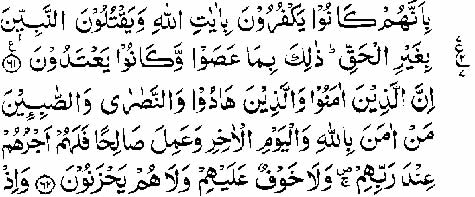 بِاَنَّهُمْ كَانُوْا يَكْفُرُوْنَ بِاٰيٰتِ اللّٰهِ وَيَقْتُلُوْنَ النَّبِيّٖنَ
بِغَيْرِ الْحَقِّ ؕ ذٰلِكَ بِمَا عَصَوْا وَّكَانُوْا يَعْتَدُوْنَ ﴿٦١﴾ ع
اِنَّ الَّذِيْنَ اٰمَنُوْا وَالَّذِيْنَ هَادُوْا وَالنَّصٰرٰى وَالصّٰبِـِٕيْنَ
مَنْ اٰمَنَ بِاللّٰهِ وَالْيَوْمِ الْاٰخِرِ وَعَمِلَ صَالِحًا فَلَهُمْ اَجْرُهُمْ
عِنْدَ رَبِّهِمْ ۚ وَلَا خَوْفٌ عَلَيْهِمْ وَلَا هُمْ يَحْزَنُوْنَ ﴿٦٢﴾ وَاِذْ